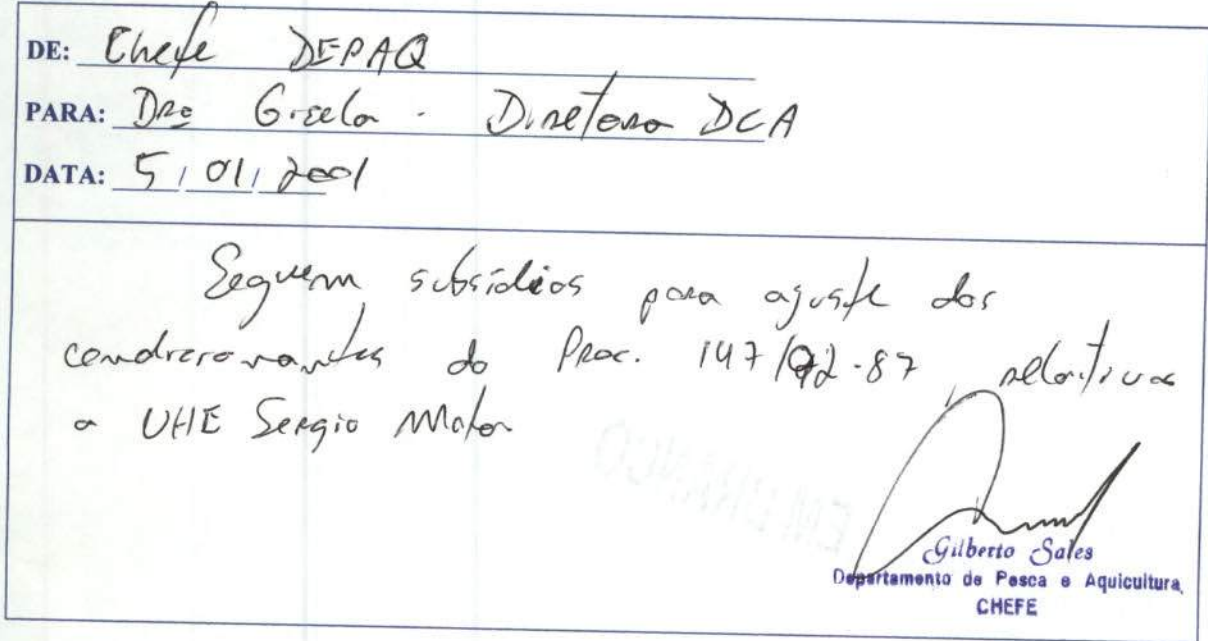 DE: Chefe DEPAQ
PARA: Dra Gisela - Diretora DCA
DATA: 5 / 01 / 2001
Seguem subsídios para ajuste dos
condicionantes do Proc. 147/92-87, relativas
a UHE Sergio Motta
EM BRANCO
Gilberto Sales
Departamento de Pesca e Aquicultura,
CHEFE